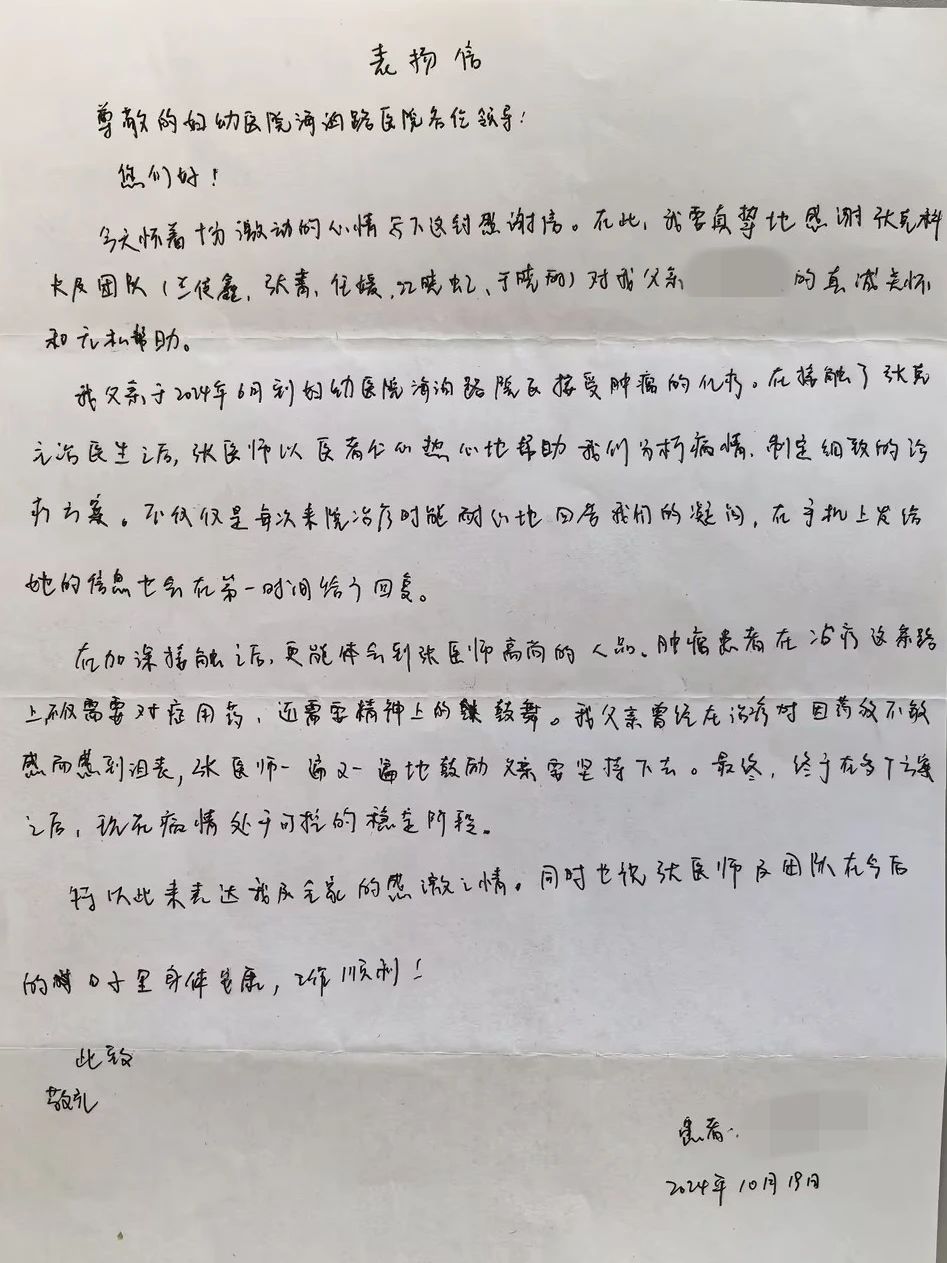 表扬信
尊敬的妇幼医院海泗路医院各位领导！
您们好！
今天怀着十分激动的心情写下这封感谢信。在此，我要真挚地感谢张克科
长及团队（兰佳鑫、张青、任媛、江晓虹、于晓丽）对我父亲 的真诚关怀
和无私帮助。
我父亲于2024年6月到妇幼医院海泗路院区接受肿瘤的化疗。在接触了张克
主治医生之后，张医师以医者仁心热心地帮助我们分析病情，制定细致的诊
疗方案。不仅仅是每次来院治疗时能耐心地回答我们的凝问，在手机上发给
她的信息也会在第一时间给予回复。
在加深接触之后，更能体会到张医师高尚的人品。肿瘤患者在治疗这条路
上不仅需要对症用药，还需要精神上的鼓舞。我父亲曾经在治疗时因药效不敏
感而感到沮丧，张医师一遍又一遍地鼓励父亲要坚持下去。最终，终于在多个方案
之后，现在病情处于可控的稳定阶段。
特以此来表达我及全家的感激之情。同时也祝张医师及团队在今后
的日子里身体健康，工作顺利！
此致
敬礼
患者：
2024年10月19日